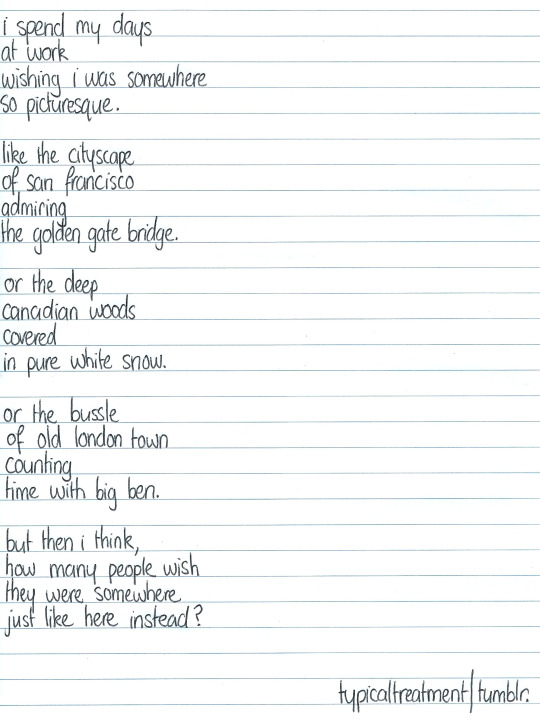 i spend my days
at work
wishing i was somewhere
so picturesque.
like the cityscape
of san francisco
admiring
the golden gate bridge.
or the deep
canadian woods
covered
in pure white snow.
or the bussle
of old london town
counting
time with big ben.
but then i think,
how many people wish
they were somewhere
just like here instead?
typicaltreatment|tumblr.